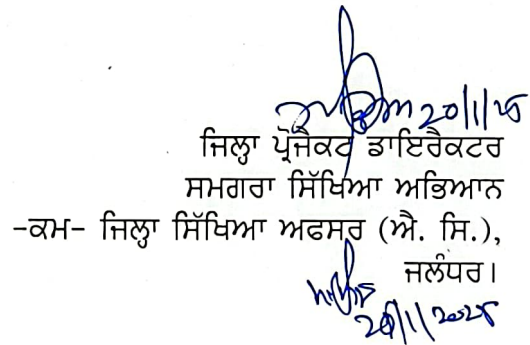 20/1/25
ਜਿਲ੍ਹਾ ਪ੍ਰੋਜੈਕਟ ਡਾਇਰੈਕਟਰ
ਸਮਗਰਾ ਸਿੱਖਿਆ ਅਭਿਆਨ
-ਕਮ- ਜਿਲ੍ਹਾ ਸਿੱਖਿਆ ਅਫਸਰ (ਐ. ਸਿ.),
ਜਲੰਧਰ।